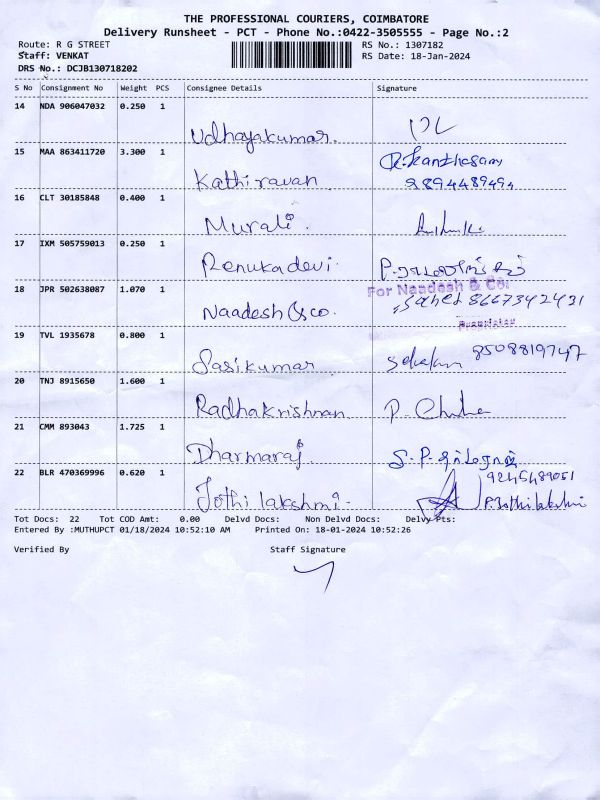 THE PROFESSIONAL COURIERS, COIMBATORE
Delivery Runsheet - PCT - Phone No.:0422-3505555 - Page No.:2
Route: R G STREET
RS No.: 1307182
Staff: VENKAT
RS Date: 18-Jan-2024
DRS No.: DCJB130718202
S No Consignment No Weight PCS Consignee Details Signature
14 NDA 906047032 0.250 1
Udhayakumar.
15 MAA 863411720 3.300 1
Kathiravan
16 CLT 30185848 0.400 1
Murali.
17 IXM 505759013 0.250 1
Renukadevi.
18 JPR 502638087 1.070 1 For Naadesh & Co:
Naadesh & co. 8667342431
Proprietor
19 TVL 1935678 0.800 1
Sasikumar 8508819747
20 TNJ 8915650 1.600 1
Radhakrishnan
21 CMM 893043 1.725 1
Dharmaraj. S.P.
22 BLR 470369996 0.620 1 9245489051
Jothi lakshmi. P.Jothilakshmi
Tot Docs: 22 Tot COD Amt: 0.00 Delvd Docs: Non Delvd Docs: Delvy Pts:
Entered By :MUTHUPCT 01/18/2024 10:52:10 AM Printed On: 18-01-2024 10:52:26
Verified By Staff Signature